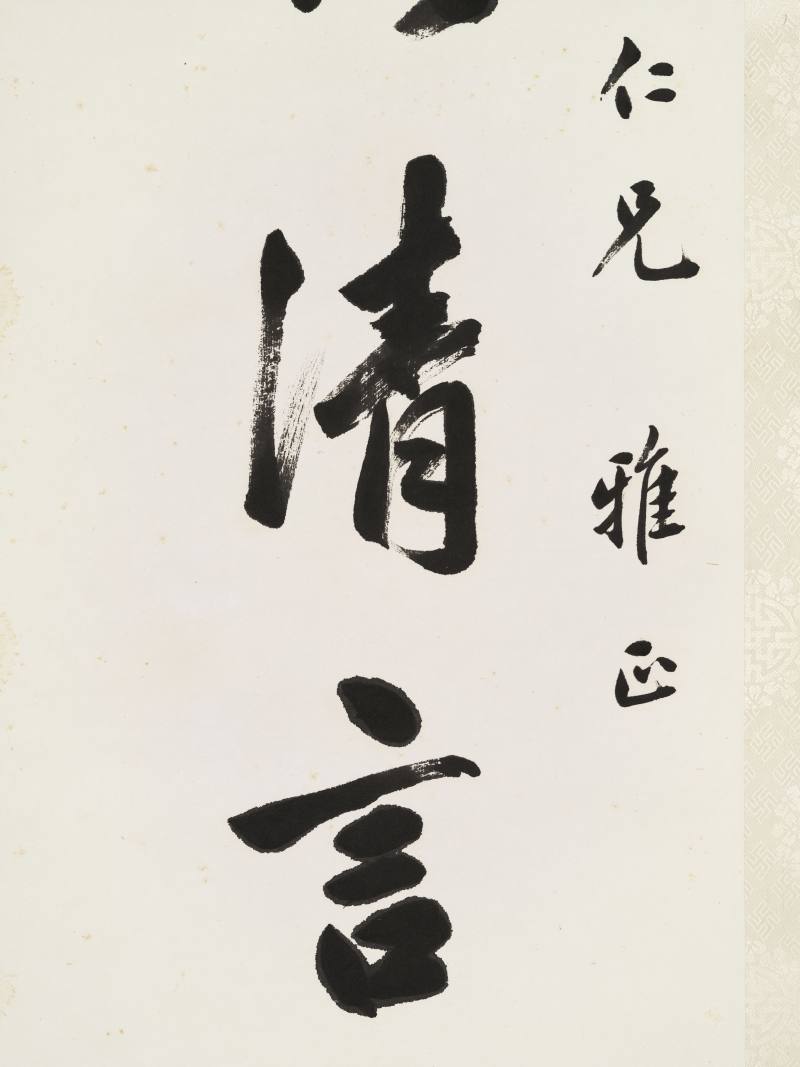 仁兄雅正
清言